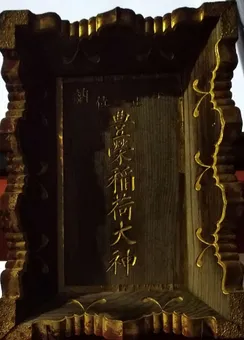 豊榮稲荷大神